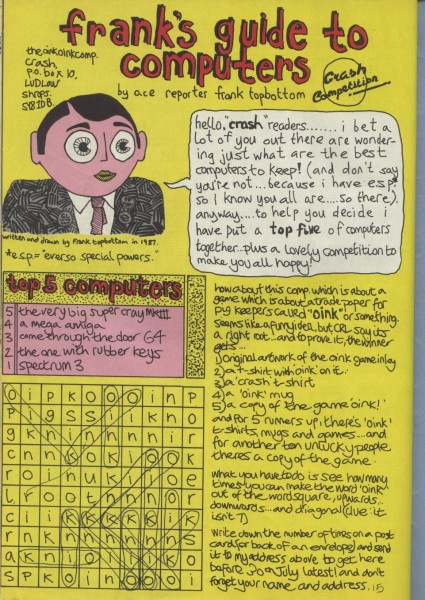 frank's guide to
computers
the oink oink comp.
crash,
p.o. box 10,
LUDLOW
shrops.
SY8 1DB.
by ace reporter frank topbottom
Crash
Competition
hello, "crash" readers....... i bet a
lot of you out there are wonder-
ing just what are the best
computers to keep! (and don't say
you're not... because i have esp*
so I know you all are.... so there).
anyway.... to help you decide i
have put a top five of computers
together.. plus a lovely competition to
make you all happy!
written and drawn by frank topbottom in 1987.
*e.s.p. = "ever so special powers."
top 5 computers
5 the very big super cray MKIII
4 a mega amiga
3 come through the door 64
2 the one with rubber keys
1 spectrum 3
how about this comp. which is about a
game which is about a trade paper for
pig keepers called "oink" or something.
seems like a funny idea, but CRL say its
a right root... and to prove it, the winner
gets...
1) original artwork of the oink game inlay
2) a t-shirt with 'oink' on it.
3) a 'crash' t-shirt
4) a 'oink' mug
5) a copy of the game 'oink!'
and for 5 runners up, there's 'oink'
t-shirts, mugs and games.... and
for another ten unlucky people
theres a copy of the game.
what you have to do is see how many
times you can make the word 'oink'
out of the wordsquare, upwards...
downwards... and diagonal (due: it
isn't 7)
write down the number of times on a post
card (or back of an envelope) and send
it to my address above to get here
before 30th July latest! and don't
forget your name and address. 15
o i p k o o o i n p
p i g s s i i k n o
g k n n n n n n i r
c n n k o k i o o k
r i n u k k i j o e
l r o o t n n n o r
c i i k k k k k i k
r n n n n n n n n s
a k n i i i o k k o
s p k o i n o o o i